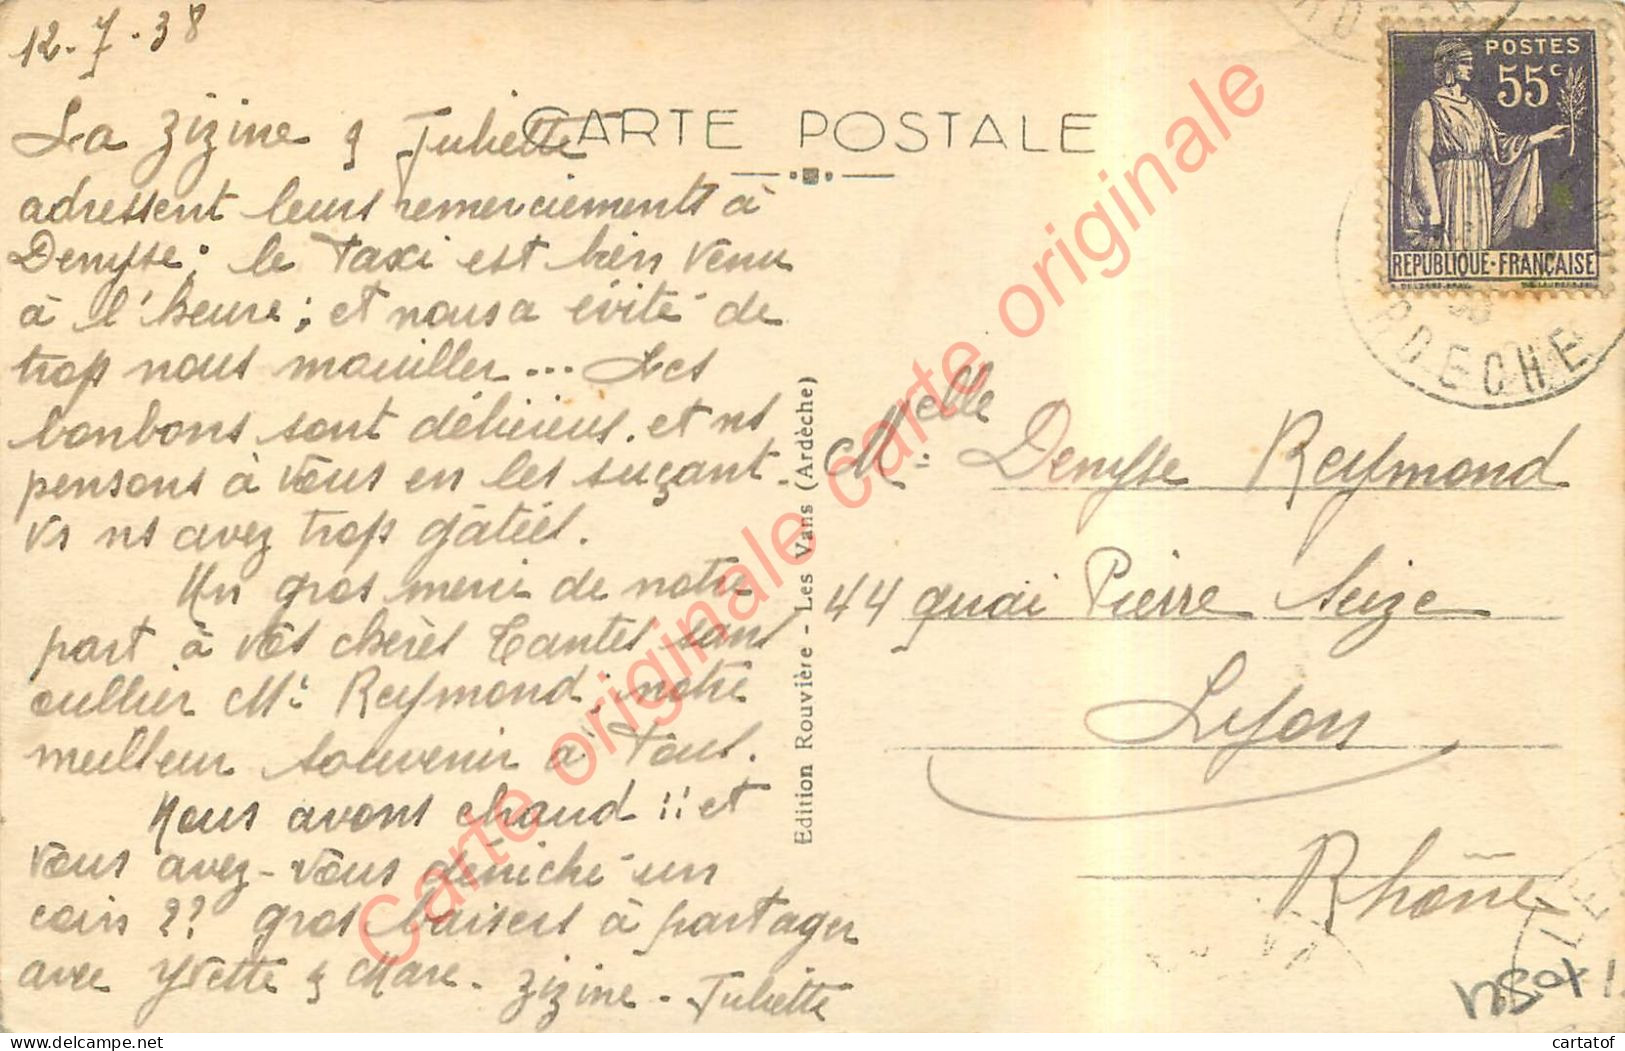 12-7-38
CARTE POSTALE
La Zizine & Juliette
adressent leurs remerciements à
Denyse; le Taxi est bien venu
à l'heure; et nous a évité de
trop nous mouiller... Les
bonbons sont délicieus. et ns
pensons à vous en les suçant.
Vs ns avez trop gâtées.
Un gros merci de notre
part à vos chères Tantes sans
oublier Mr Reymond; notre
meilleur souvenir à Tous.
Nous avons chaud !! et
vous avez-vous déniché un
coin ?? gros baisers à partager
avec Yvette & Marc. Zizine - Juliette
Edition Rouvière - Les Vans (Ardèche)
POSTES
55c
REPUBLIQUE-FRANÇAISE
RDECHE
Melle Denyse Reymond
44 quai Pierre Seize
Lyon
Rhône
Carte originale carte originale carte originale
cartatof